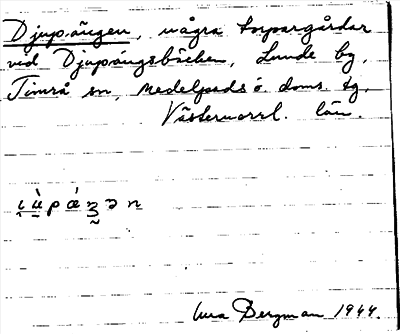 Djupången, några torpargårdar
vid Djupångsbäcken, Lunde by,
Timrå sn, Medelpads ö. doms. tg,
Västernorrl. län.
Bergman 1944.